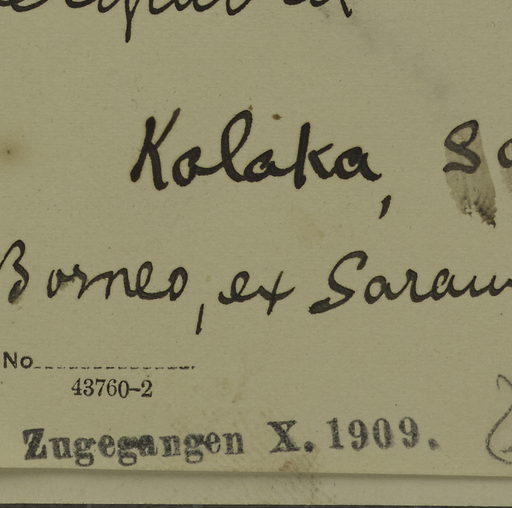 Kalaka, Sa
Borneo, ex Saraw
No
43760-2
Zugegangen X. 1909.